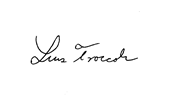 Luis Troccoli